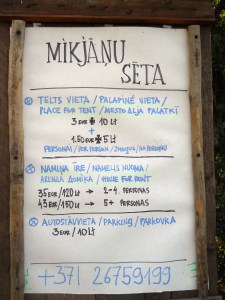 MIKJĀŅU
SĒTA
TELTS VIETA / PALAPINĖ VIETA /
PLACE FOR TENT / MESTO DLJA PALATKI
3 EUR 10 Lt
+
1.50 EUR 5 Lt
PERSONAS / PER PERSON /
NAMIŅA ĪRE / NAMELIS NUOMA /
ARENDA DOMIKA / HOUSE FOR RENT
35 EUR / 120 Lt → 2-4 PERSONAS
43 EUR / 150 Lt → 5+ PERSONAS
AUTOSTĀVVIETA / PARKING / PARKOVKA
3 EUR / 10 Lt
+371 26759199